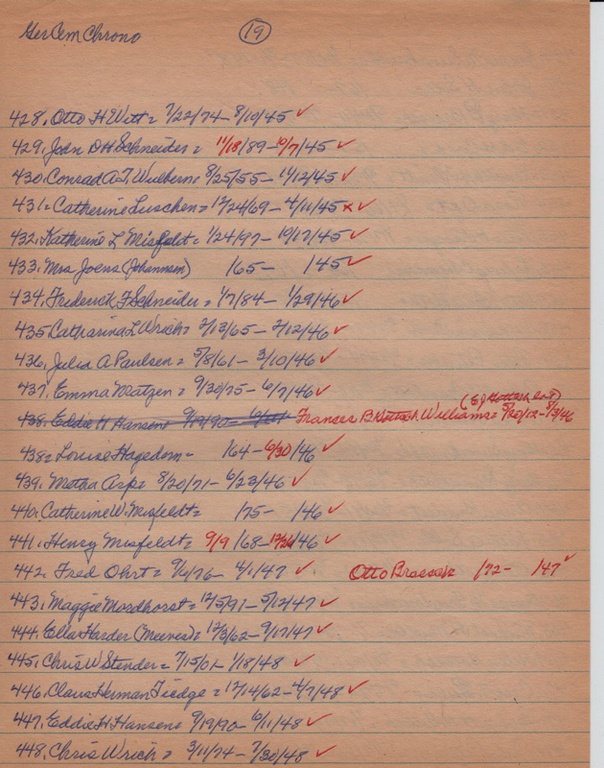 Ger Cem Chrono 19
428. Otto H Witt = 7/22/74 - 8/10/45 ✓
429. John D H Schneider = 11/18/89 - 10/7/45 ✓
430. Conrad A.T. Wulbern = 8/25/55 - 11/12/45 ✓
431. Catherine Luschen = 12/24/69 - 4/11/45 x ✓
432. Katherine L Misfeldt = 1/24/97 - 10/17/45 ✓
433. Mrs Joens (Johannsen) /65 - /45 ✓
434. Frederick F Schneider = 1/7/84 - 1/29/46 ✓
435 Catharina L Wrich = 2/13/65 - 2/12/46 ✓
436. Julia A Paulsen = 5/8/61 - 3/10/46 ✓
437. Emma Matzen = 9/30/75 - 6/7/46 ✓
(EJ lot)
438. Eddie H Hansen 9/19/90 - Frances B Williams = 5/20/12 - 5/3/46
438 = Louise Hagedorn - /64 - 6/20/46 ✓
439. Metha Asp = 8/20/71 - 6/23/46 ✓
440. Catherine W. Misfeldt = /75 - /46 ✓
441. Henry Misfeldt = 9/9/68 - 12/26/46 ✓
442. Fred Ohrt = 9/6/76 - 4/1/47 ✓ Otto Braesch /72 - /47 ✓
443. Maggie Mordhorst = 12/5/91 - 5/12/47 ✓
444. Ella Harder (Meeves) = 12/3/62 - 9/17/47 ✓
445. Chris W Stender = 7/15/01 - 1/18/48 ✓
446. Claus Herman Tiedge = 12/14/62 - 4/7/48 ✓
447. Eddie H Hansen = 9/19/90 - 6/11/48 ✓
448. Chris Wrich = 3/11/74 - 7/30/48 ✓